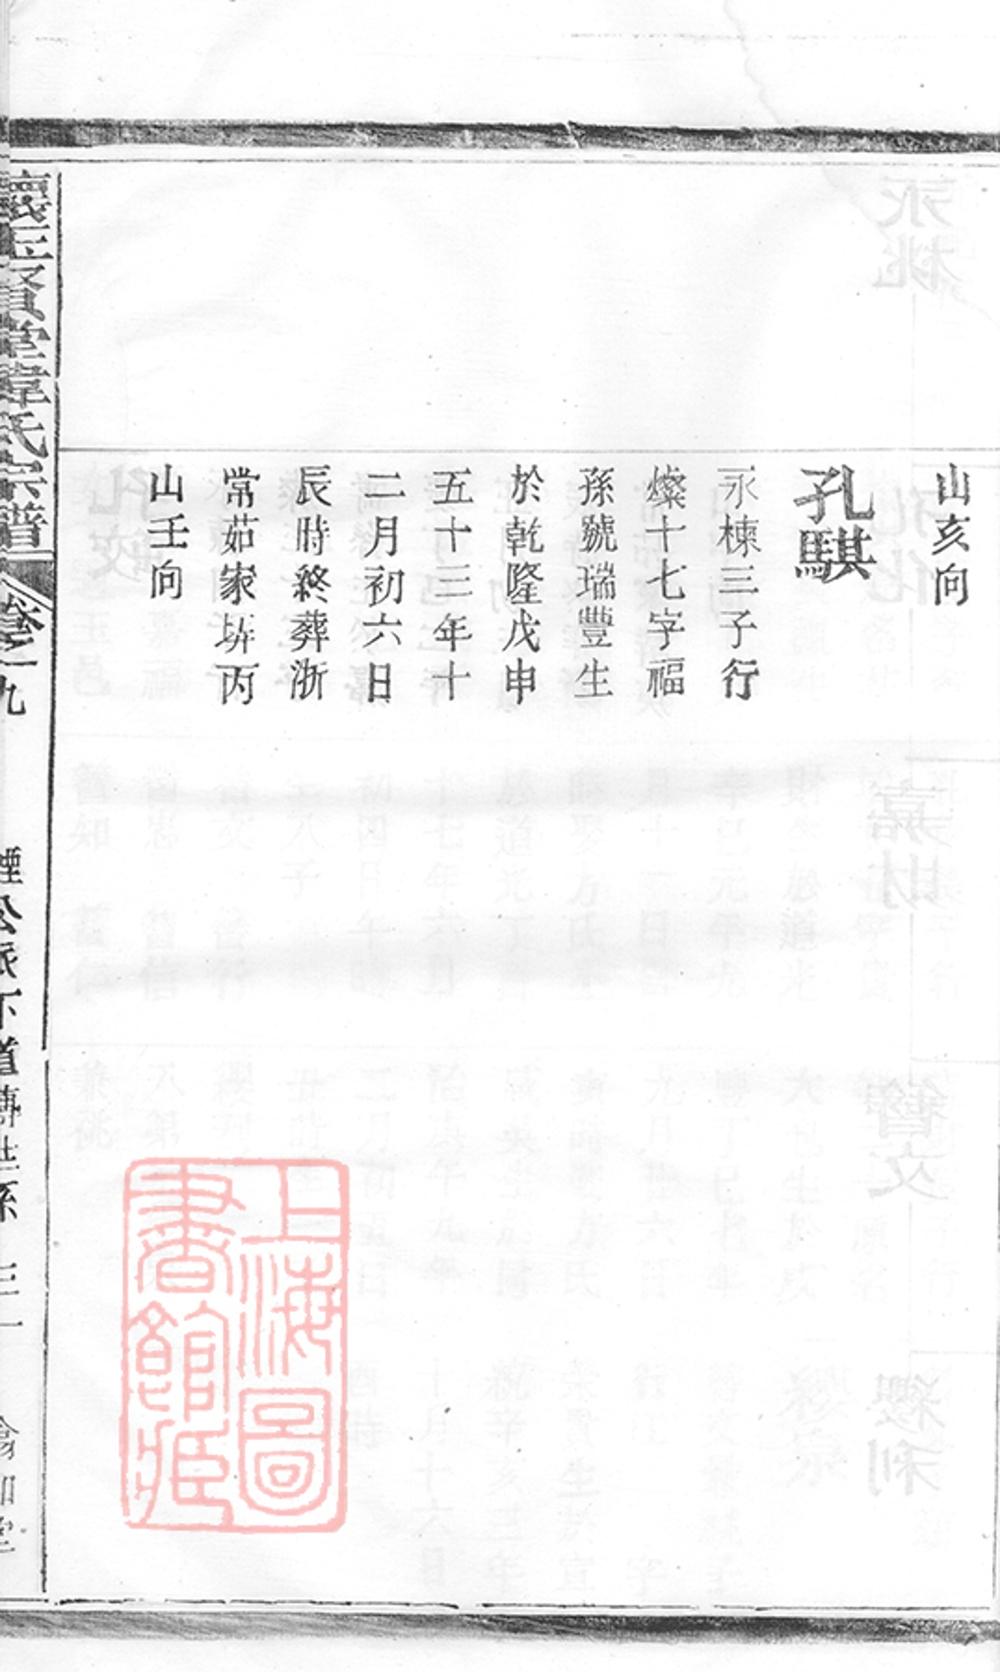 山亥向
孔騏
永棟三子行
燦十七字福
孫號瑞豐生
於乾隆戊申
五十三年十
二月初六日
辰時終葬浙
常茹家塢丙
山壬向
賢堂韋氏宗譜
卷之九
公派下道傳世系
上海圖
書館藏